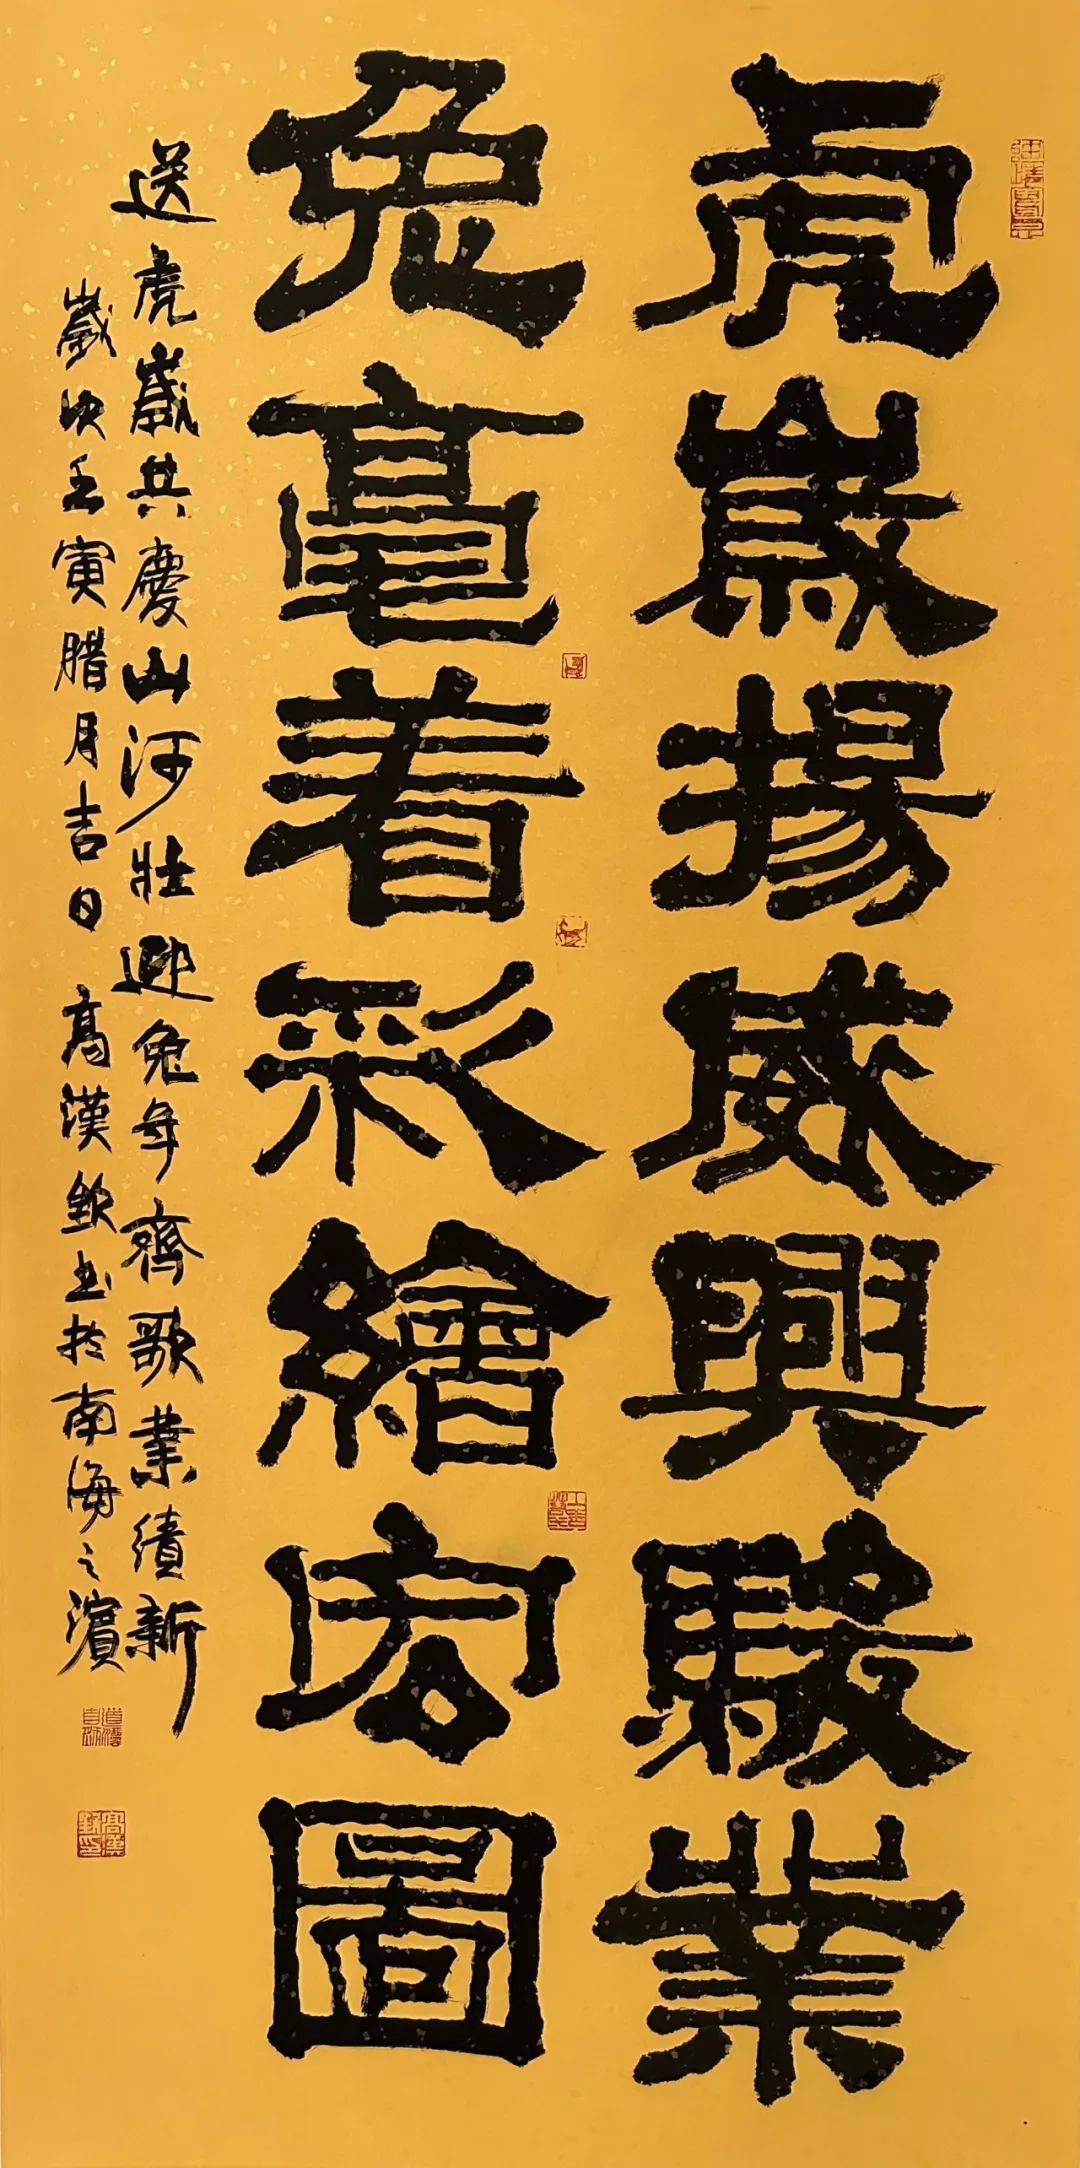 虎歲揚威興駿業
兔毫着彩繪宏圖
送虎歲共慶山河壯迎兔年齊歌業績新
歲次壬寅腊月吉日高漢欽書於南海之濱